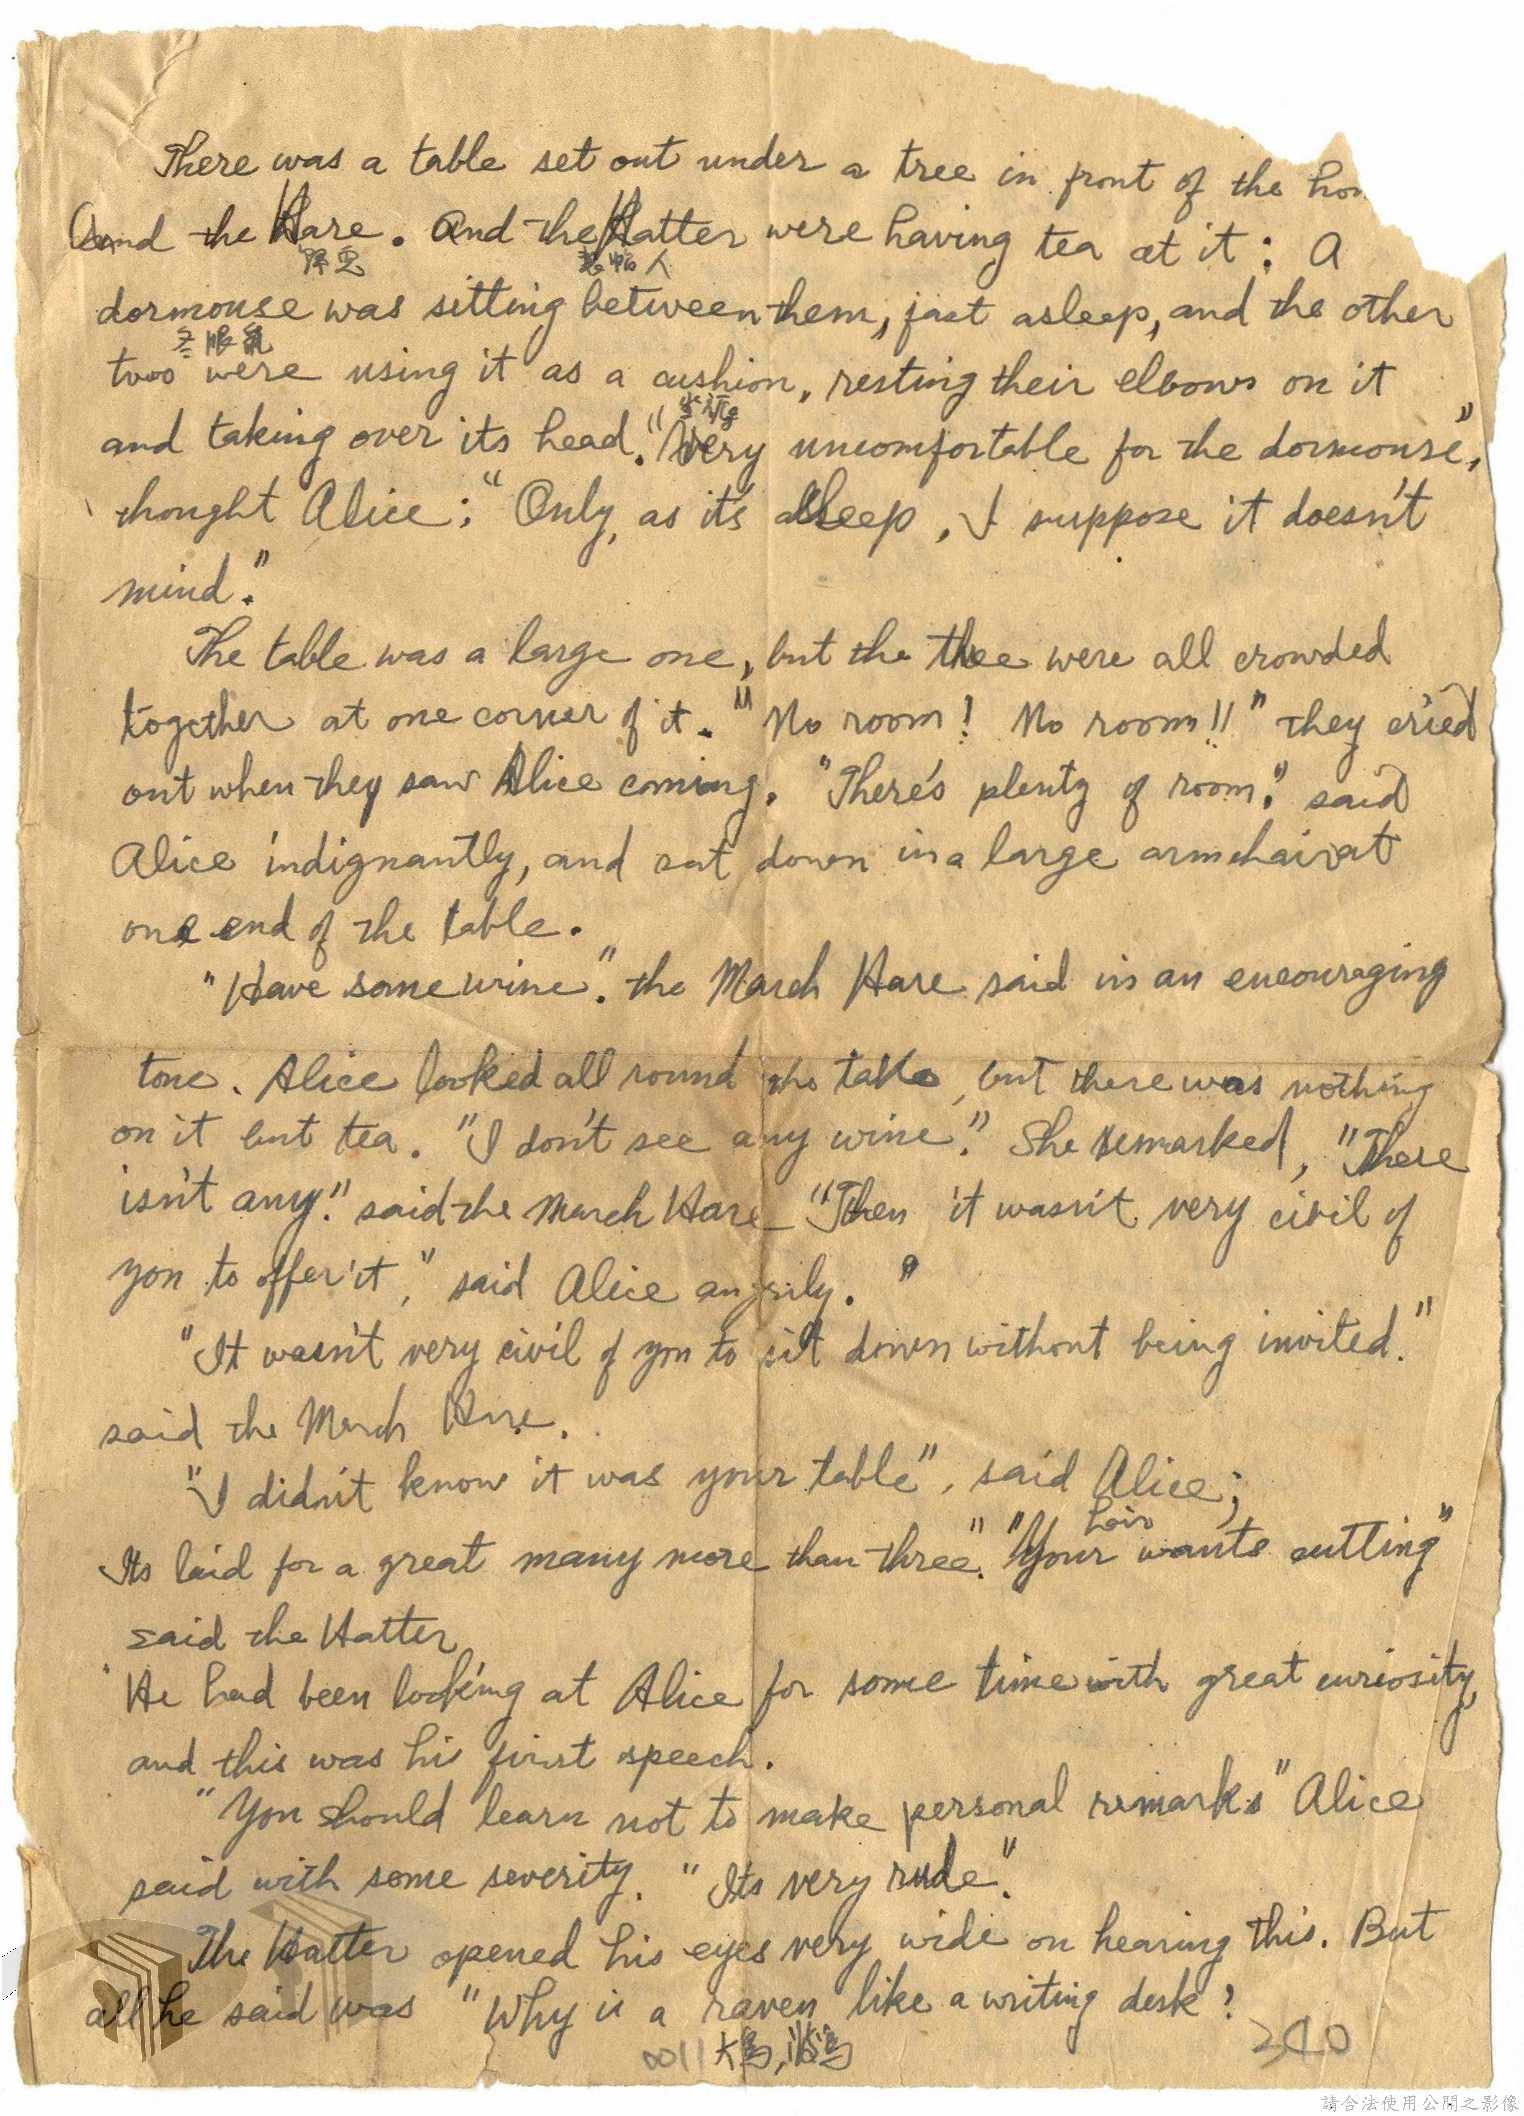 There was a table set out under a tree in front of the hou
and the Hare. and the Hatter were having tea at it: A
dormouse was sitting between them, fast asleep, and the other
冬眠鼠
two were using it as a cushion, resting their elbows on it
and taking over its head. "Very uncomfortable for the dormouse",
thought Alice; "Only, as it's asleep, I suppose it doesn't
mind."
The table was a large one, but the thee were all crowded
together at one corner of it. "No room! No room!!" They cried
out when they saw Alice coming. "There's plenty of room." said
Alice indignantly, and sat down in a large armchair at
one end of the table.
"Have some wine". the March Hare said in an encouraging
tone. Alice looked all round the table, but there was nothing
on it but tea. "I don't see any wine." She remarked, "There
isn't any." said the March Hare "Then it wasn't very civil of
you to offer it," said Alice angrily."
"It wasn't very civil of you to sit down without being invited."
said the March Hare.
"I didn't know it was your table", said Alice;
hair
Its laid for a great many more than three". "Your wants cutting"
said the Hatter
He had been looking at Alice for some time with great curiosity,
and this was his first speech.
"You should learn not to make personal remarks" Alice
said with some severity. "Its very rude".
The Hatter opened his eyes very wide on hearing this. But
all he said was "Why is a raven like a writing desk?
0011 大鴉, 240
請合法使用公開之影像